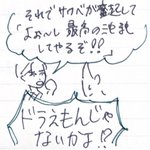 それで が奮起して
よぉ〜し 最高の
してやるぞ!!
ドラえもんじゃ
ないかよ!?